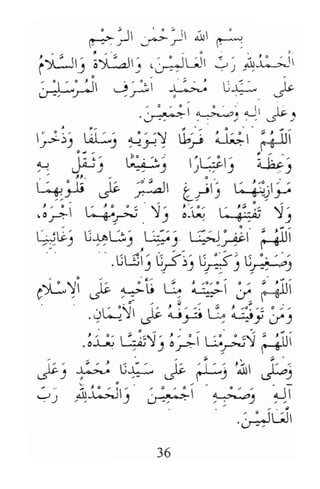 بِسْمِ اللهِ الرَّحْمٰنِ الرَّحِيْمِ
اَلْحَمْدُلِلّٰهِ رَبِّ الْعَالَمِيْنَ، وَالصَّلَاةُ وَالسَّلَامُ
عَلَى سَيِّدِنَا مُحَمَّدٍ اَشْرَفِ الْمُرْسَلِيْنَ
وَعَلَى اٰلِهِ وَصَحْبِهِ اَجْمَعِيْنَ.
اَللّٰهُمَّ اجْعَلْهُ فَرَطًا لِاَبَوَيْهِ وَسَلَفًا وَذُخْرًا
وَعِظَةً وَاعْتِبَارًا وَشَفِيْعًا وَثَقِّلْ بِهِ
مَوَازِيْنَهُمَا وَافْرِغِ الصَّبْرَ عَلَى قُلُوْبِهِمَا
وَلَا تَفْتِنَّهُمَا بَعْدَهُ وَلَا تَحْرِمْهُمَا اَجْرَهُ،
اَللّٰهُمَّ اغْفِرْلِحَيِّنَا وَمَيِّتِنَا وَشَاهِدِنَا وَغَائِبِنَا
وَصَغِيْرِنَا وَكَبِيْرِنَا وَذَكَرِنَا وَاُنْثَانَا.
اَللّٰهُمَّ مَنْ اَحْيَيْتَهُ مِنَّا فَأَحْيِهِ عَلَى الْاِسْلَامِ
وَمَنْ تَوَفَّيْتَهُ مِنَّا فَتَوَفَّهُ عَلَى الْاِيْمَانِ.
اَللّٰهُمَّ لَاتَحْرِمْنَا اَجْرَهُ وَلَاتَفْتِنَّا بَعْدَهُ.
وَصَلَّى اللهُ وَسَلَّمَ عَلَى سَيِّدِنَا مُحَمَّدٍ وَعَلَى
اٰلِهِ وَصَحْبِهِ اَجْمَعِيْنَ وَالْحَمْدُلِلّٰهِ رَبِّ
الْعَالَمِيْنَ.
36